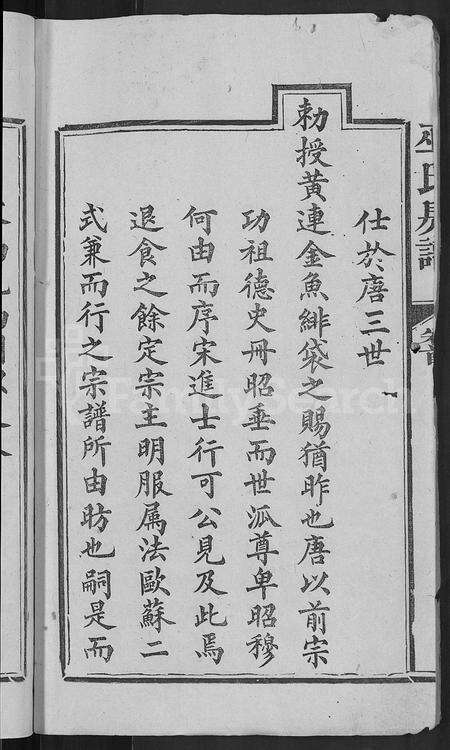 仕於唐三世
勅授黄連金魚緋袋之賜猶昨也唐以前宗
功祖德史冊昭垂而世派尊卑昭穆
何由而序宋進士行可公見及此焉
退食之餘定宗主明服属法歐蘇二
式兼而行之宗譜所由昉也嗣是而
FamilySearch